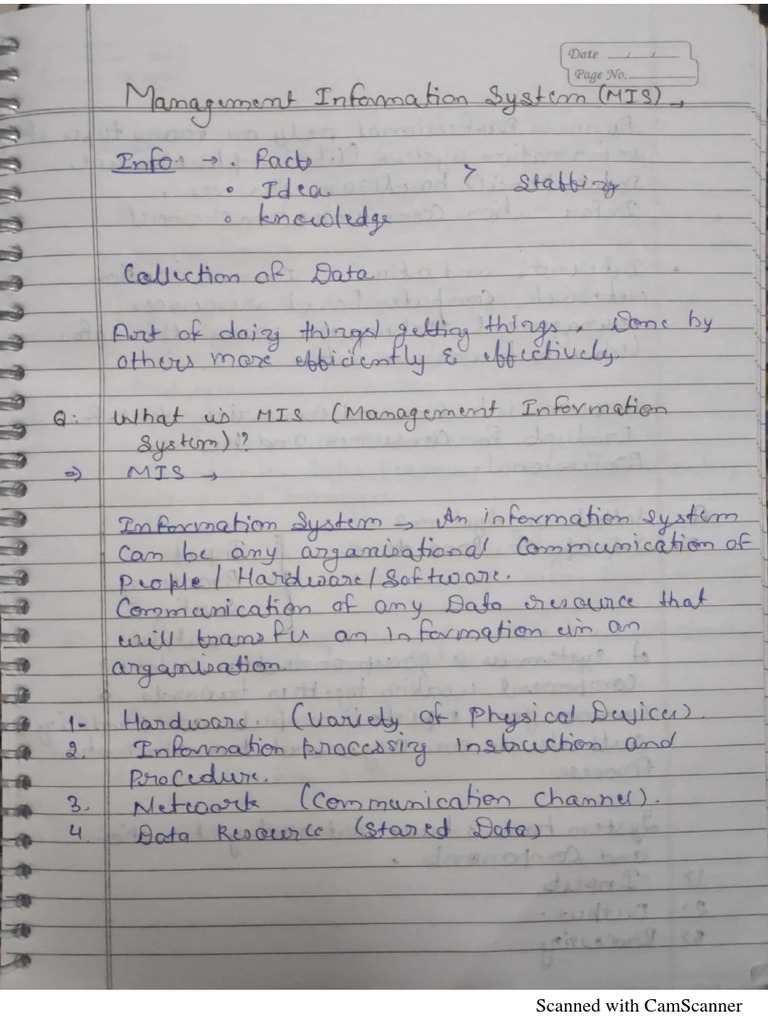 Date
Page No.
Management Information System (MIS) →
Info → • Facts
• Idea > Staffing
• Knowledge
Collection of Data
Art of doing things/ getting things, Done by
others more efficiently & effectively.
Q: What is MIS (Management Information
System)?
⇒ MIS →
Information System → An information System
can be any organisational Communication of
People / Hardware / Software.
Communication of any Data resource that
will transfer an information in an
organisation.
1- Hardware. (Variety of Physical Devices).
2. Information processing Instruction and
Procedure.
3. Network (Communication Channel).
4. Data Resource (Stored Data)
Scanned with CamScanner